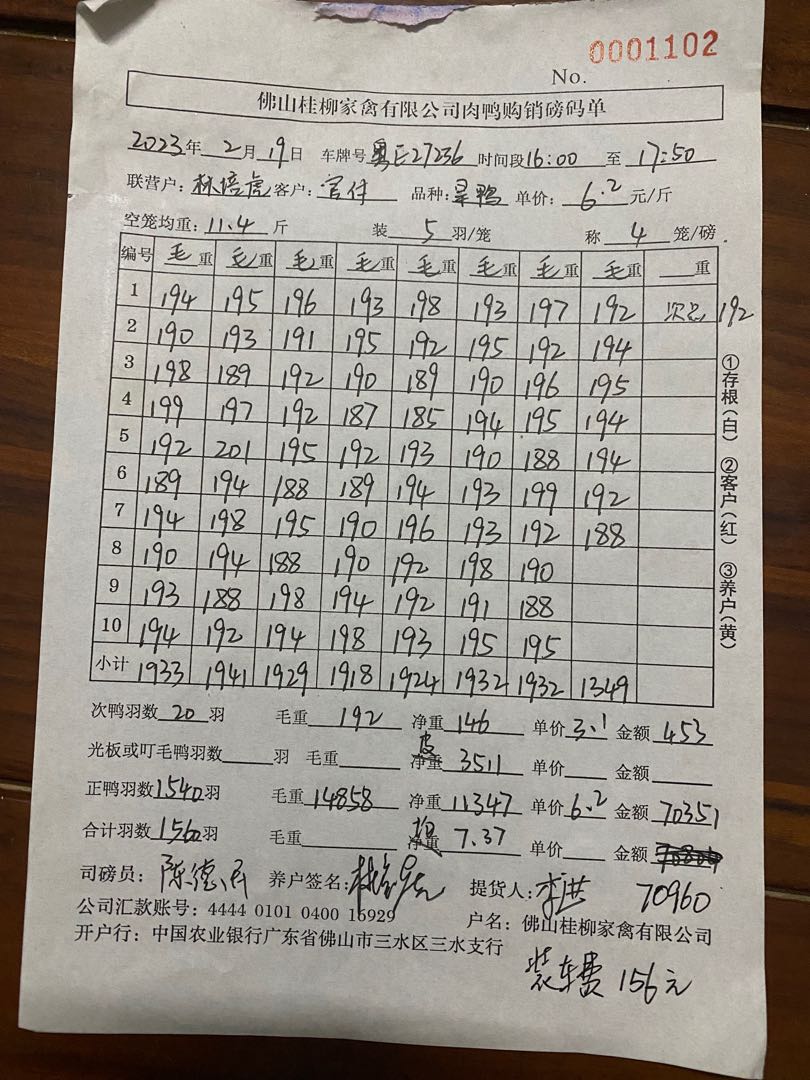 No. 0001102
佛山桂柳家禽有限公司肉鸭购销磅码单
2023年 2月 19日 车牌号 粤E27236 时间段 16:00 至 17:50
联营户: 林培虎 客户: 官仔 品种: 旱鸭 单价: 6.2 元/斤
空笼均重: 11.4 斤 装 5 羽/笼 称 4 笼/磅
编号 毛重 毛重 毛重 毛重 毛重 毛重 毛重 毛重 重
1 194 195 196 193 198 193 197 192 次品 192
2 190 193 191 195 192 195 192 194
3 198 189 192 190 189 190 196 195
4 199 197 192 187 185 194 195 194
5 192 201 195 192 193 190 188 194
6 189 194 188 189 194 193 199 192
7 194 198 195 190 196 193 192 188
8 190 194 188 190 192 198 190
9 193 188 198 194 192 191 188
10 194 192 194 198 193 195 195
小计 1933 1941 1929 1918 1924 1932 1932 1349
①存根(白) ②客户(红) ③养户(黄)
次鸭羽数 20 羽 毛重 192 净重 146 单价 3.1 金额 453
光板或叮毛鸭羽数 羽 毛重 皮重 3511 单价 金额
正鸭羽数 1540 羽 毛重 14858 净重 11347 单价 6.2 金额 70351
合计羽数 1560 羽 毛重 均重 7.37 单价 金额
司磅员: 陈德民 养户签名: 提货人: 李洪 70960
公司汇款账号: 4444 0101 0400 16929 户名: 佛山桂柳家禽有限公司
开户行: 中国农业银行广东省佛山市三水区三水支行
装车费 156元